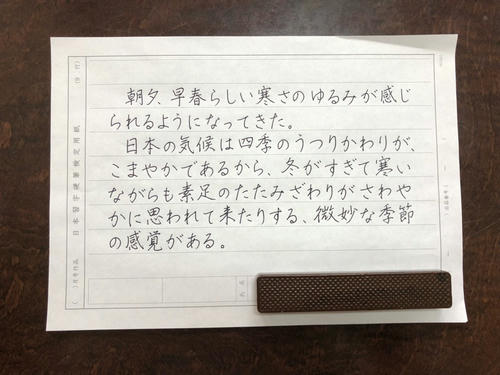 朝夕、早春らしい寒さのゆるみが感じ
られるようになってきた。
日本の気候は四季のうつりかわりが、
こまやかであるから、冬がすぎて寒い
ながらも素足のたたみざわりがさわや
かに思われて来たりする、微妙な季節
の感覚がある。
日本習字硬筆検定用紙
( )月号作品
氏名